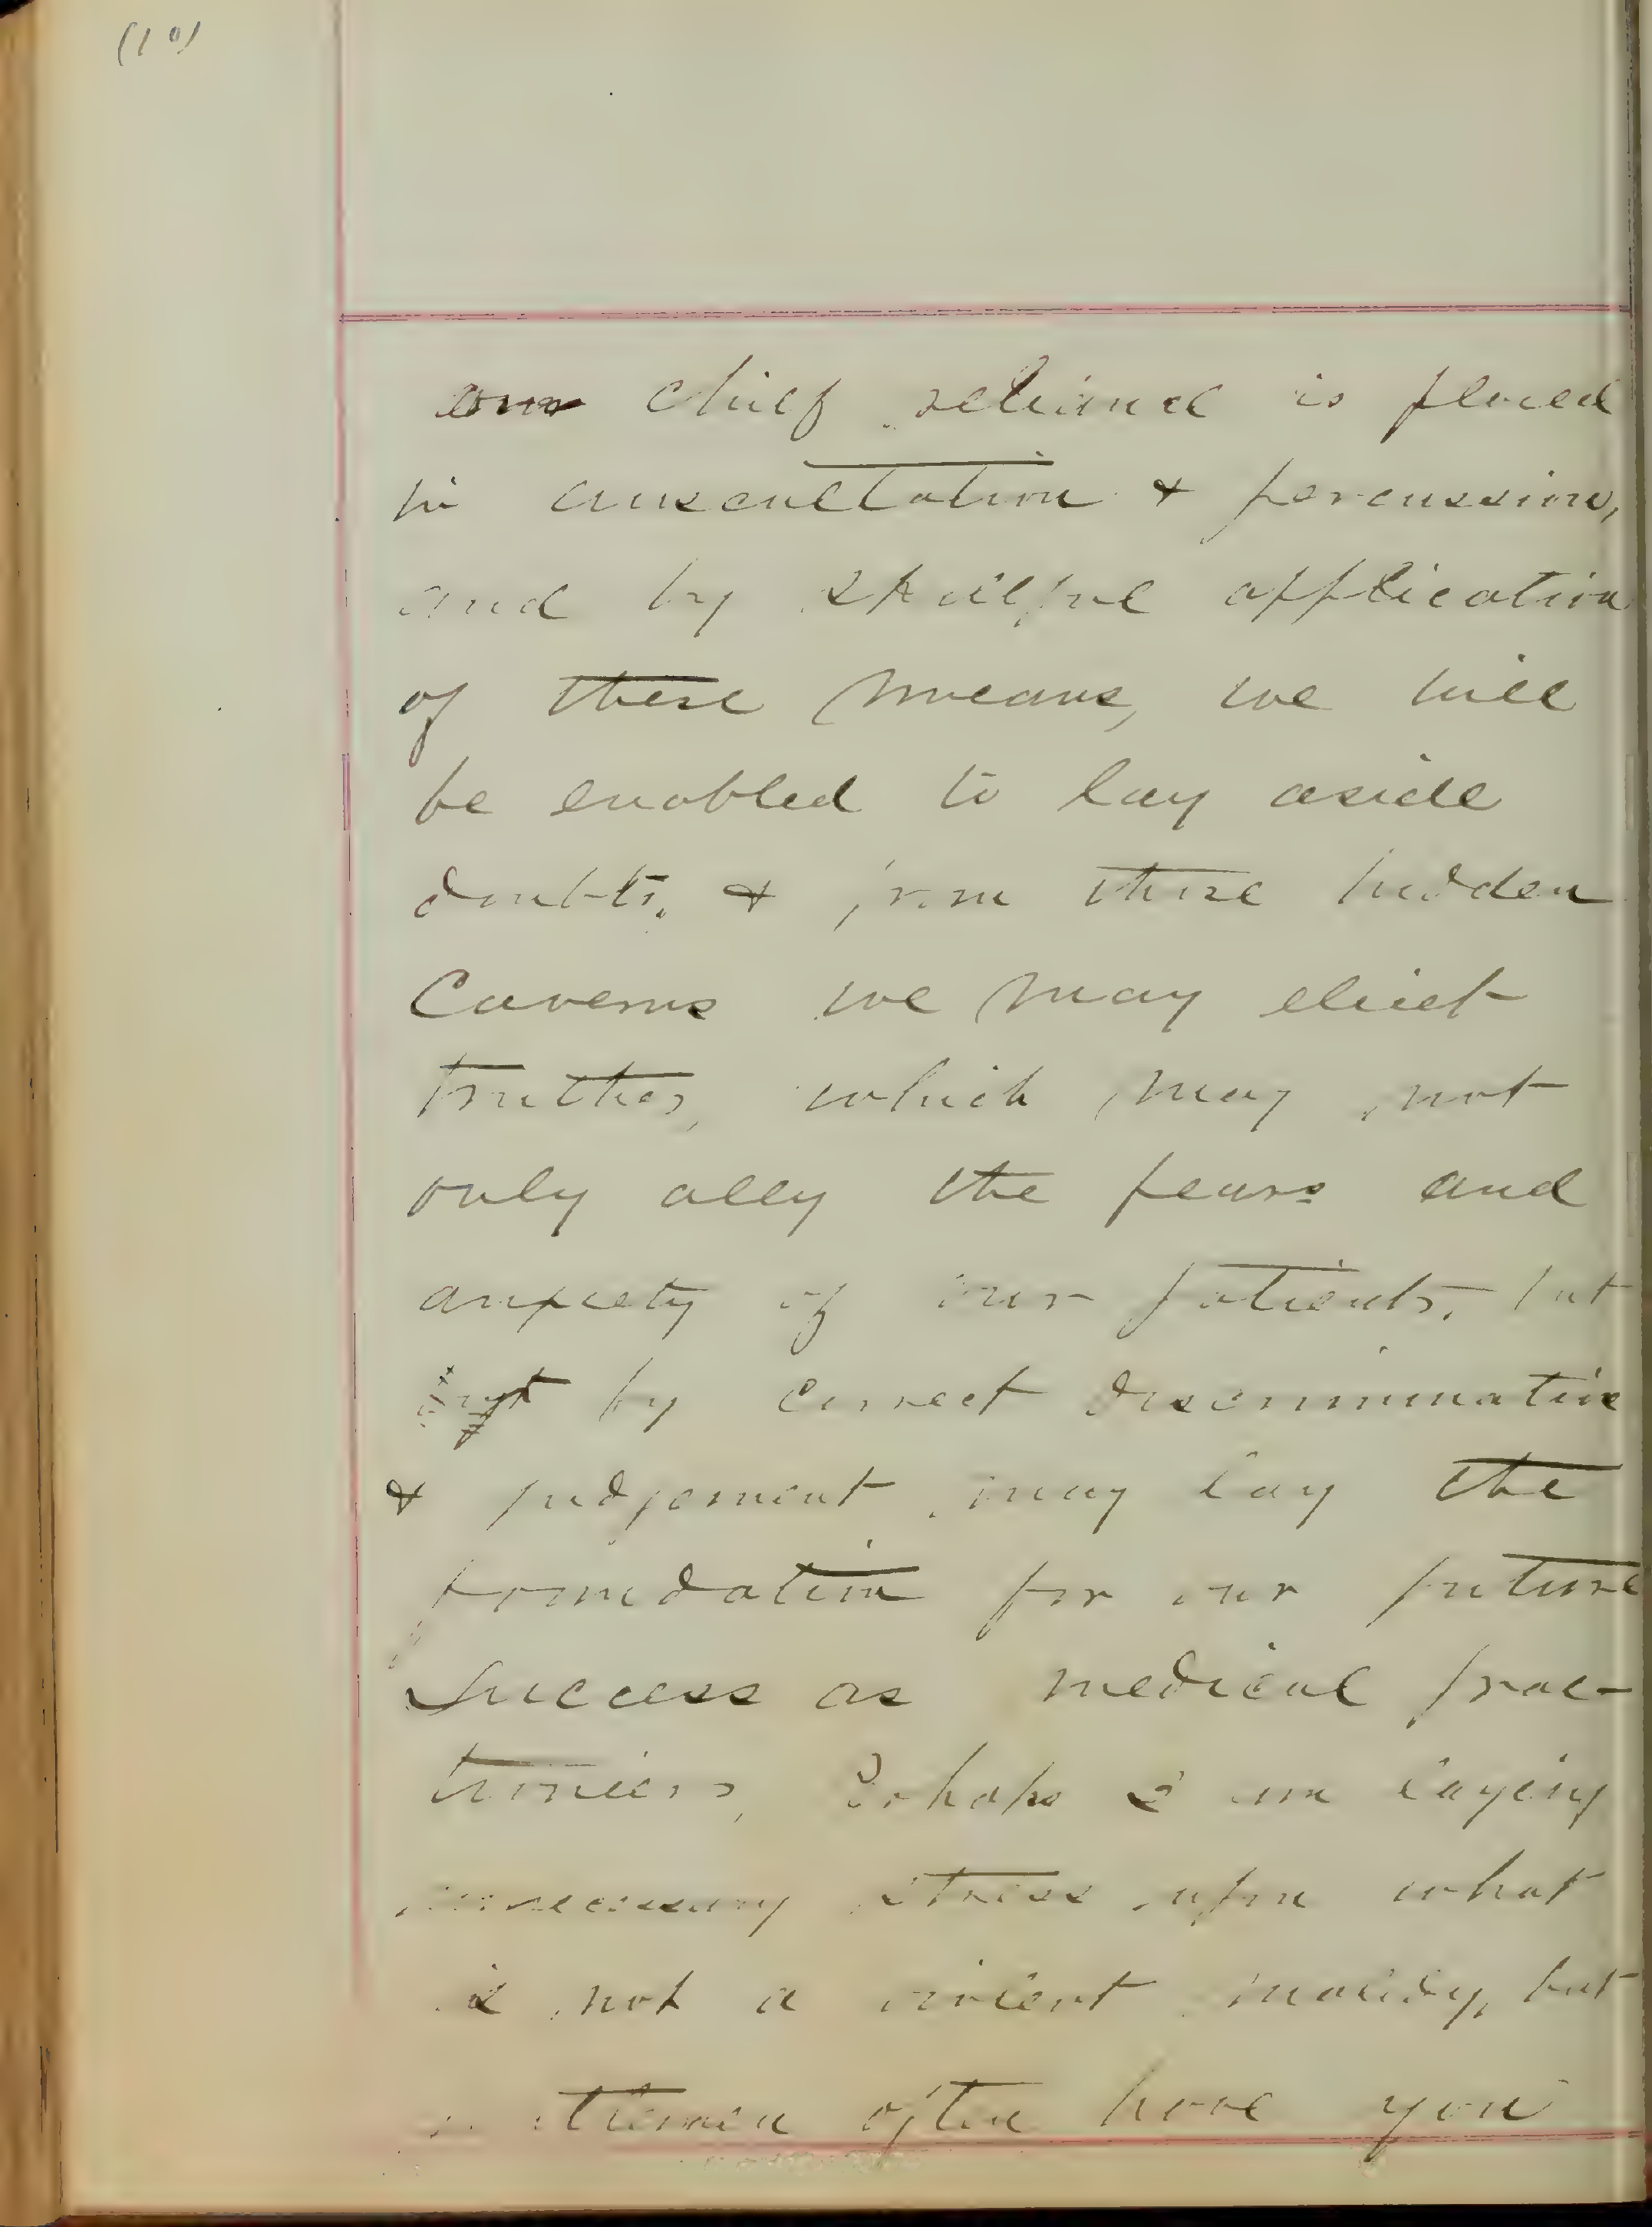 (10)
our chief reliance is placed
in auscultation & percussion,
and by skillful application
of these means, we will
be enabled to lay aside
doubts, & from these hidden
Caverns we may elicit
truths, which may not
only ally the fears and
anxiety of our patients, but
by correct discrimination
& judgement may lay the
foundation for our future
Success as medical prac-
tioners, Perhaps I am laying
unnecessary stress upon what
is not a violent malidy, but
often have you